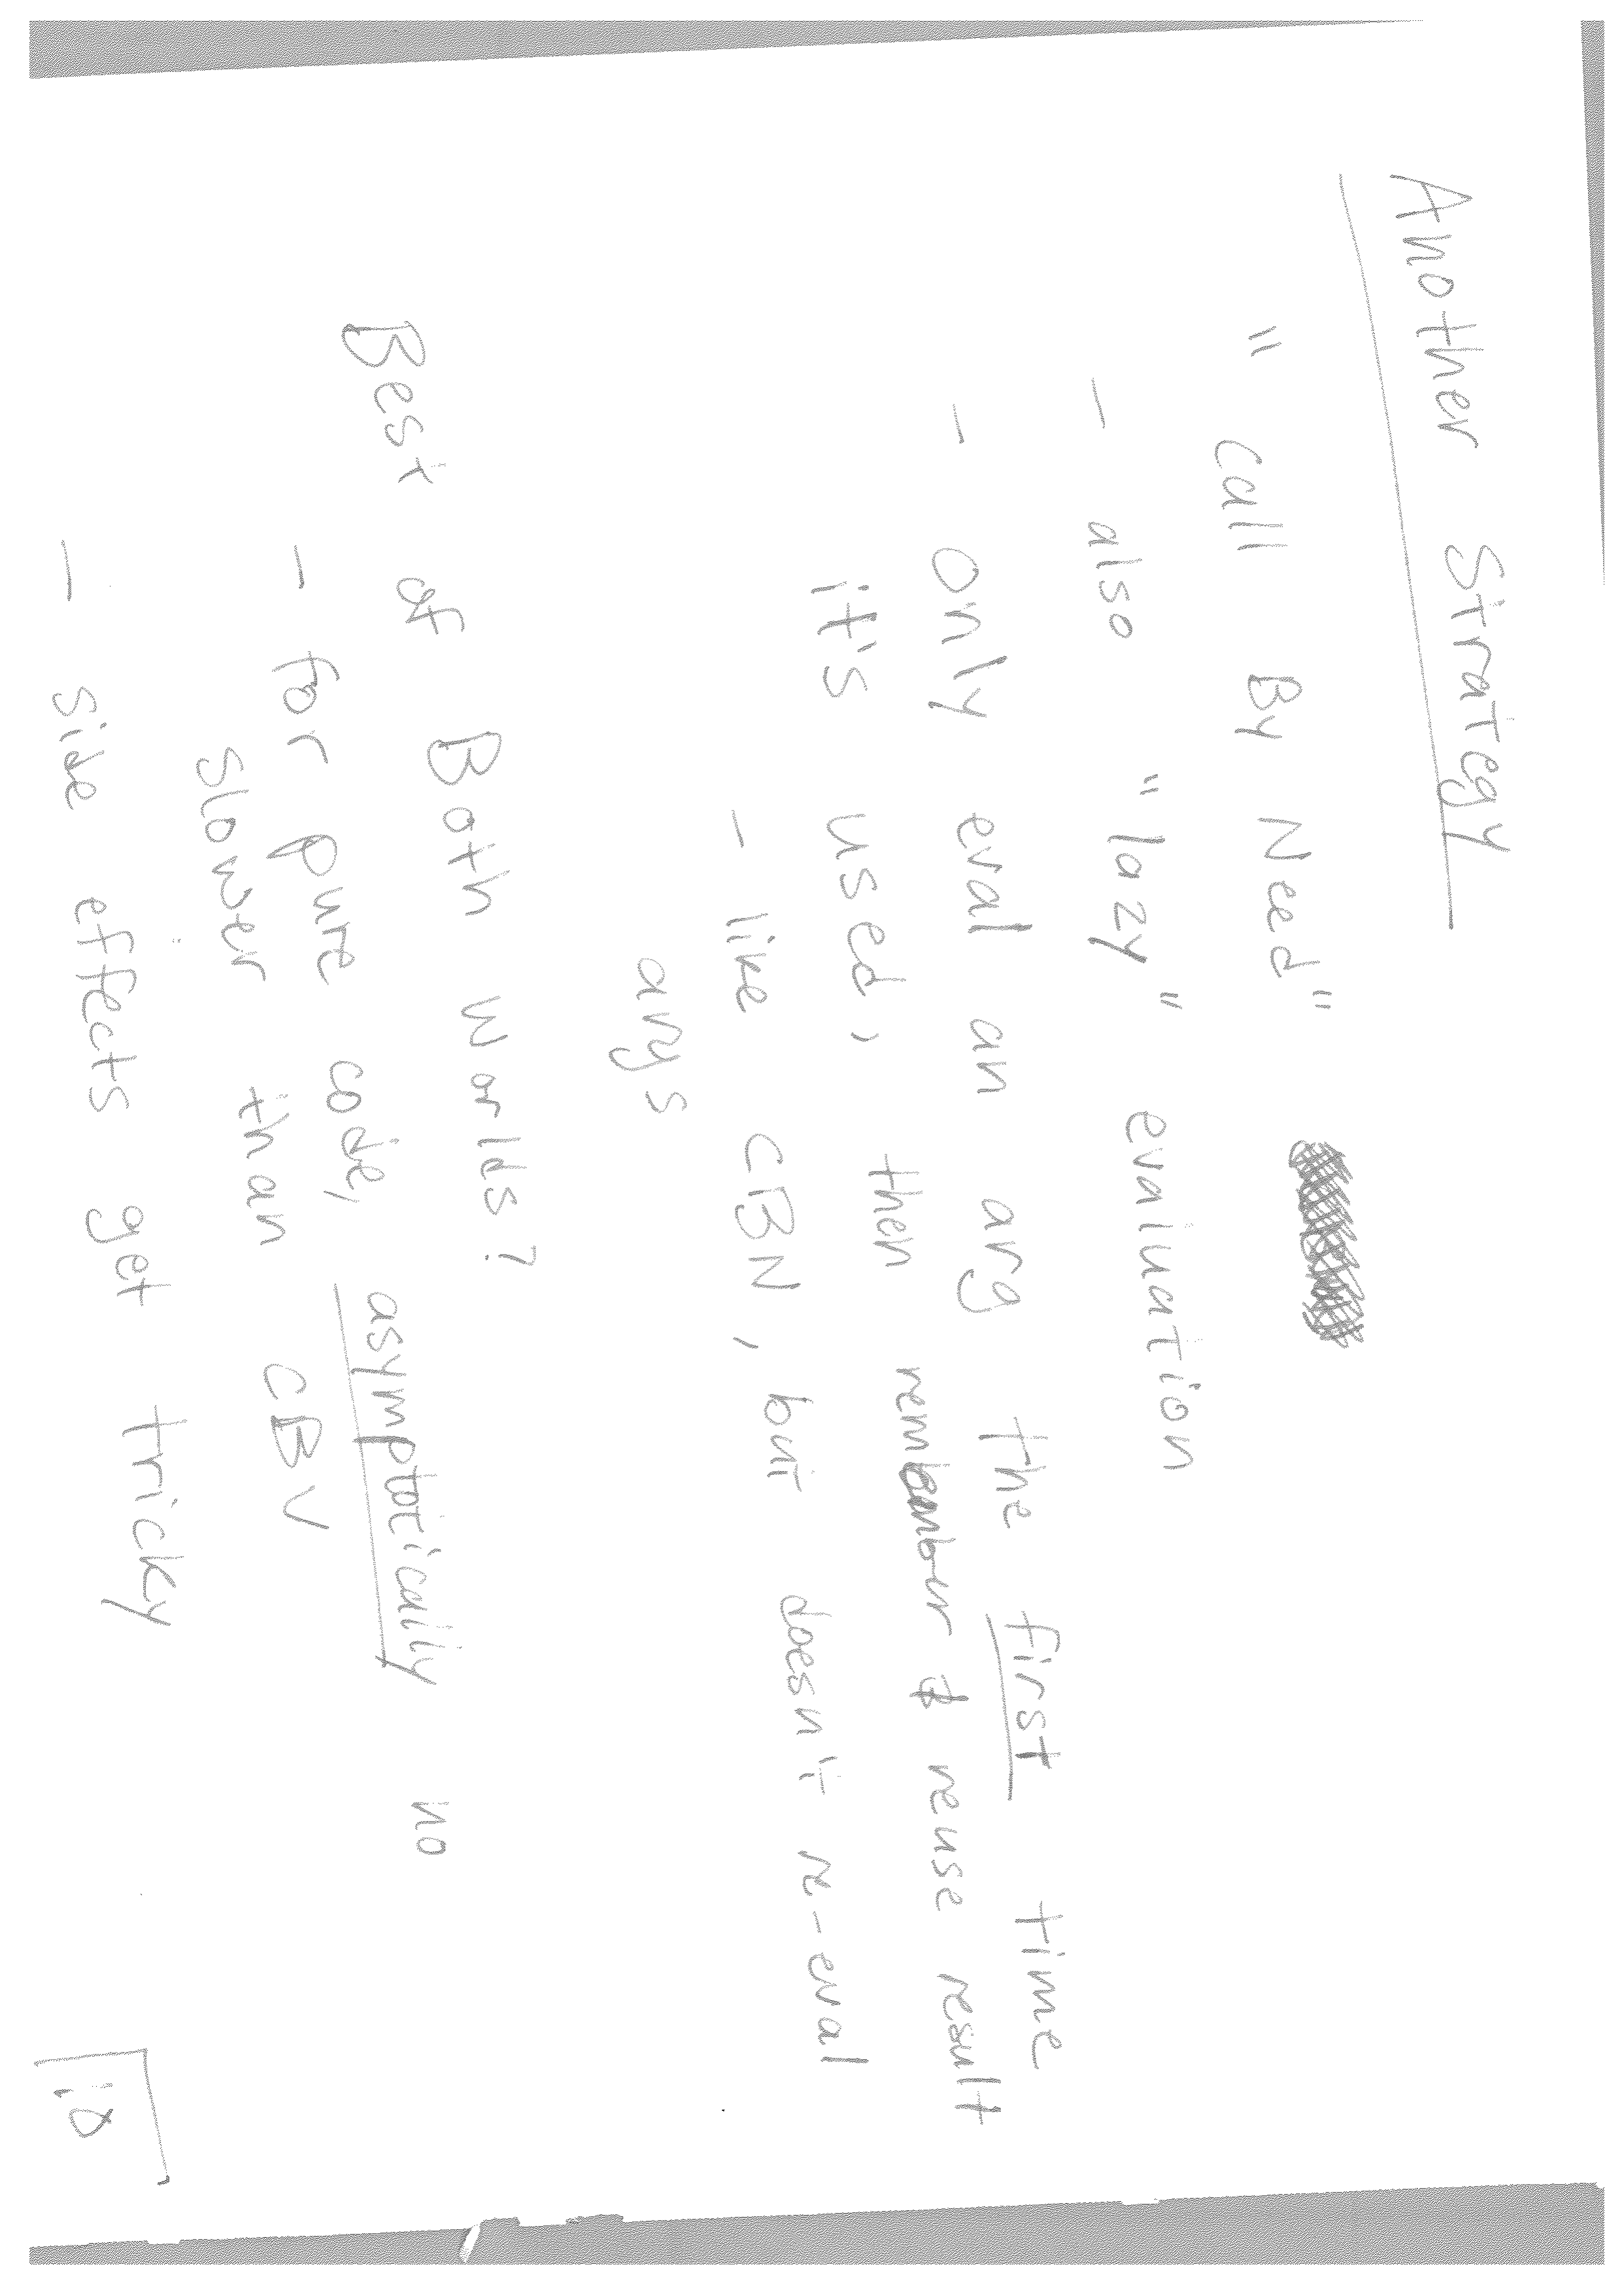 Another Strategy
"Call By Need"
- also "lazy" evaluation
- Only eval an arg the first time
it's used, then remember & reuse result
- like CBN, but doesn't re-eval
args
Best of Both Worlds?
- for pure code, asymptotically no
slower than CBV
- Side effects get tricky